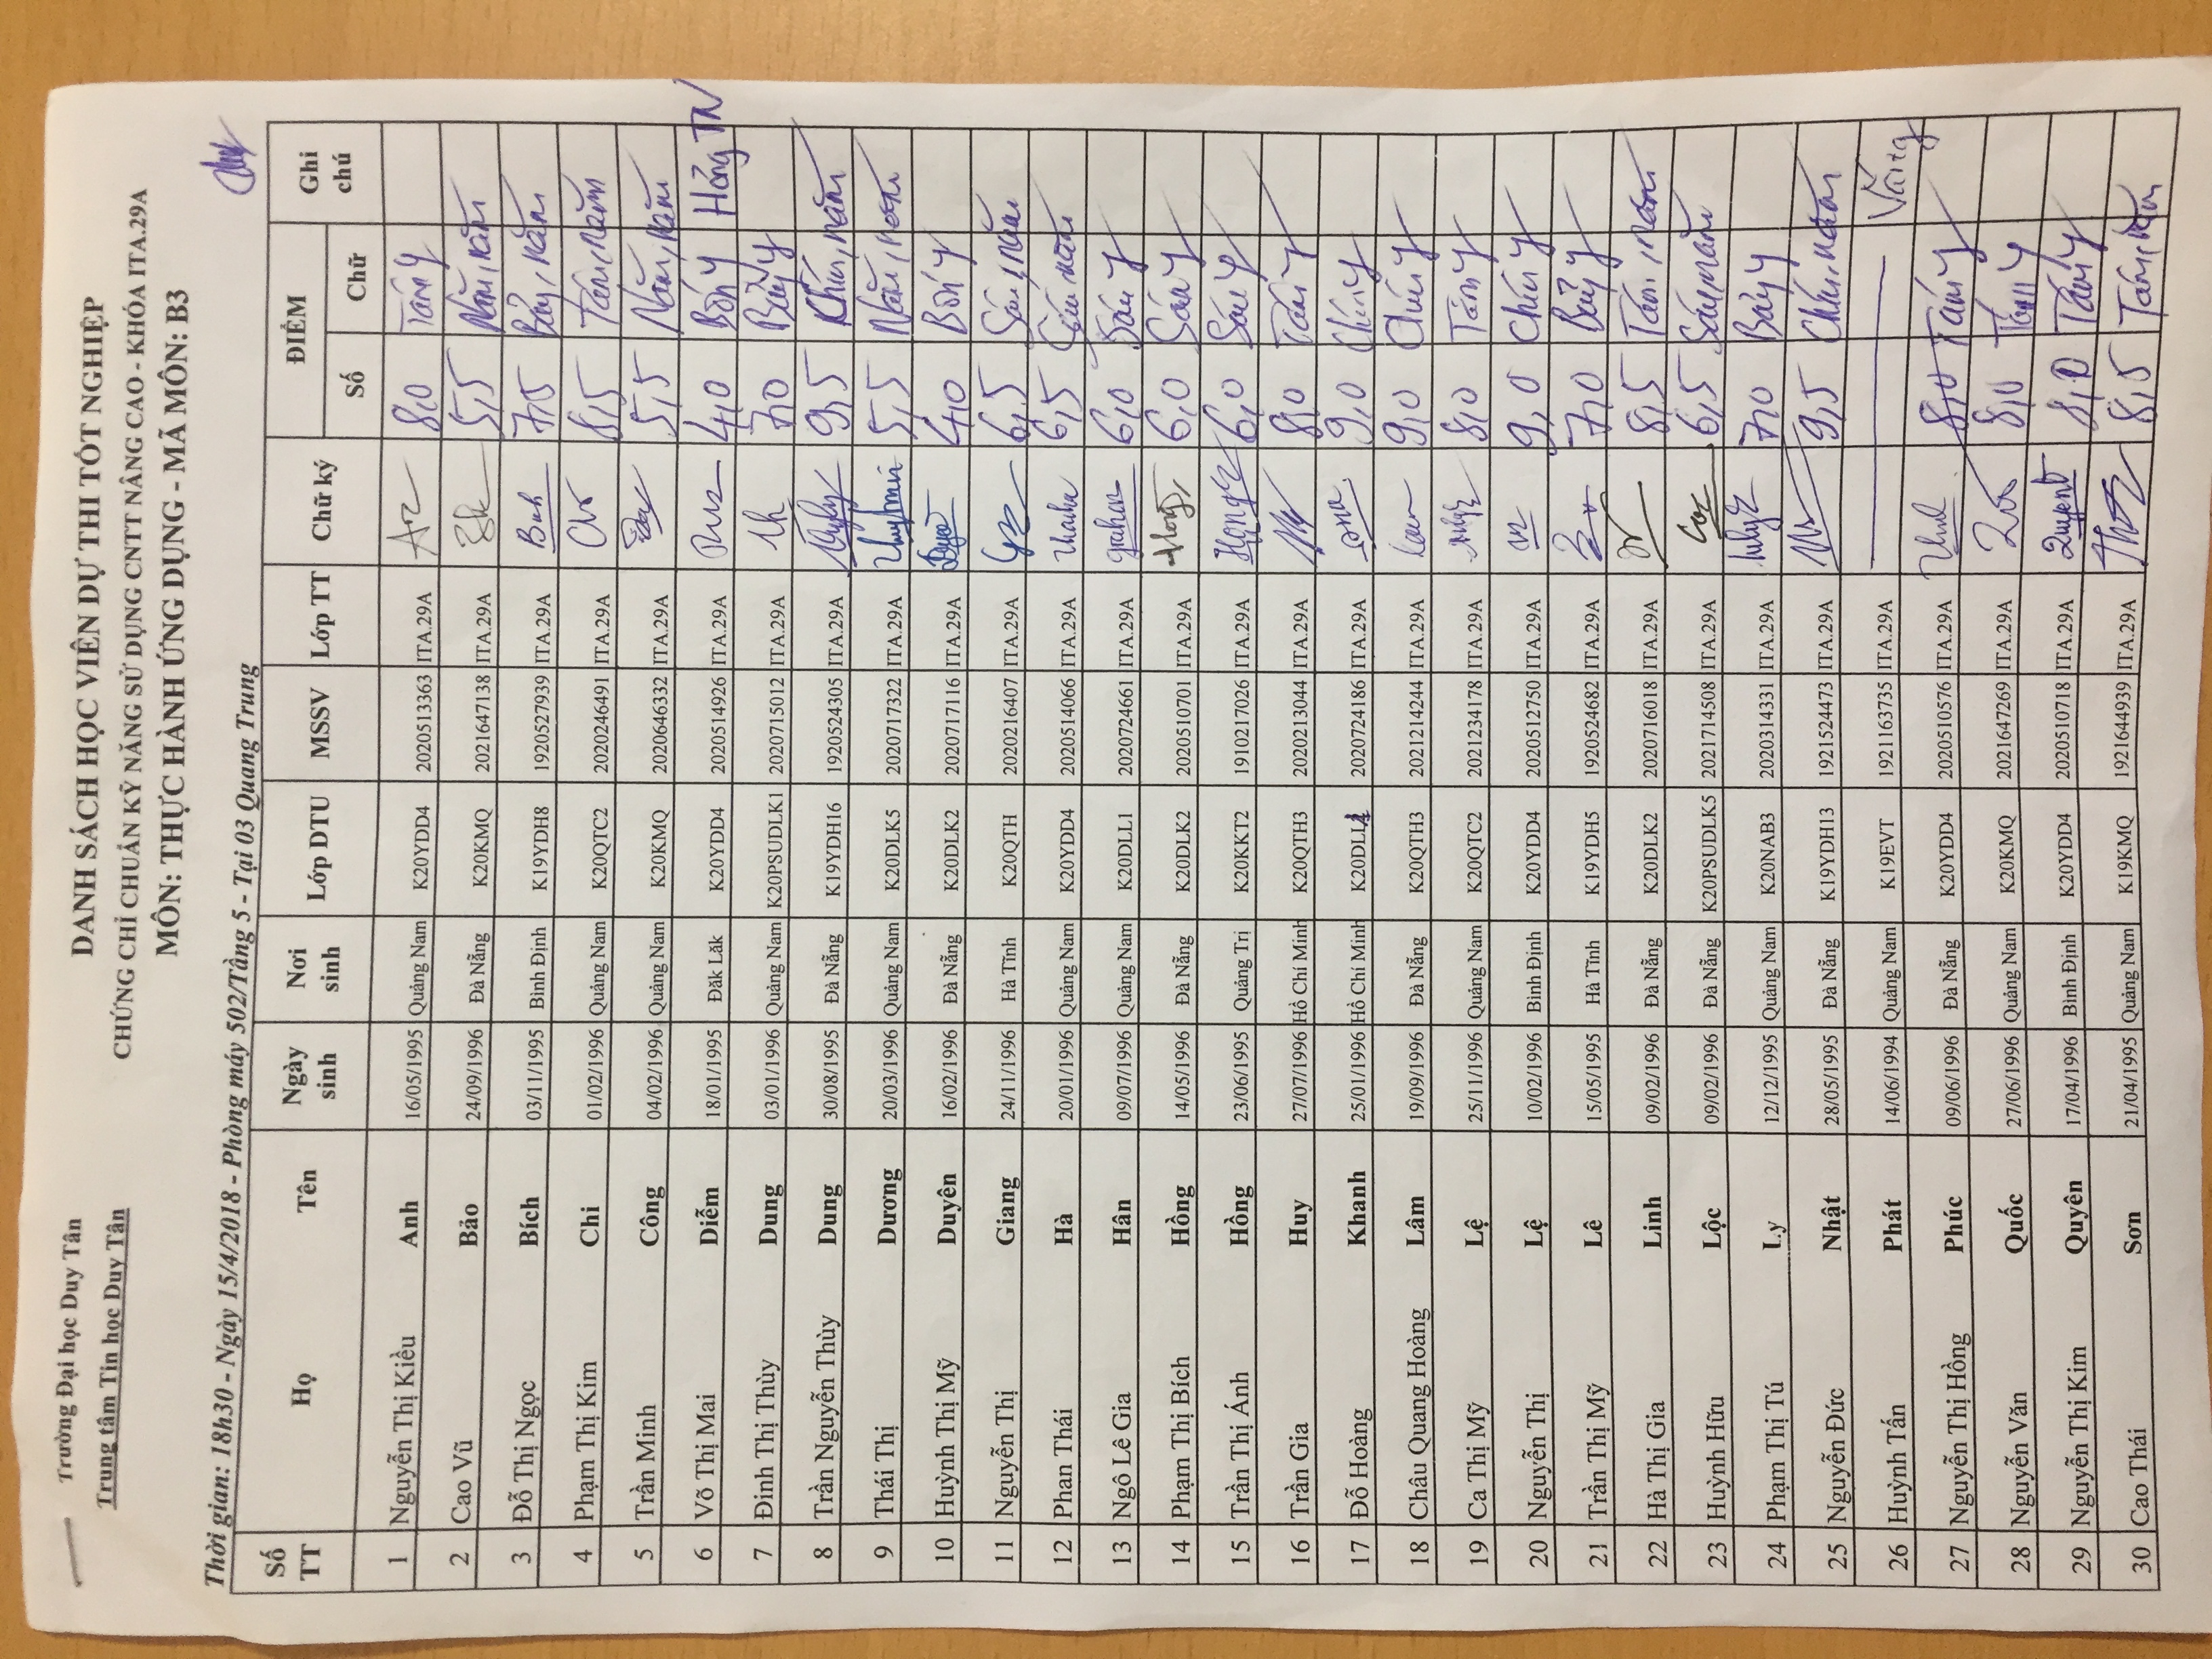 Trường Đại học Duy Tân
Trung tâm Tin học Duy Tân
DANH SÁCH HỌC VIÊN DỰ THI TỐT NGHIỆP
CHỨNG CHỈ CHUẨN KỸ NĂNG SỬ DỤNG CNTT NÂNG CAO - KHÓA ITA.29A
MÔN: THỰC HÀNH ỨNG DỤNG - MÃ MÔN: B3
Thời gian: 18h30 - Ngày 15/4/2018 - Phòng máy 502/Tầng 5 - Tại 03 Quang Trung
Số TT Họ Tên Ngày sinh Nơi sinh Lớp DTU MSSV Lớp TT Chữ ký ĐIỂM Số Chữ Ghi chú
1 Nguyễn Thị Kiều Anh 16/05/1995 Quảng Nam K20YDD4 2020513363 ITA.29A 8,0 Tám y
2 Cao Vũ Bảo 24/09/1996 Đà Nẵng K20KMQ 2021647138 ITA.29A 5,5 Năm, năm
3 Đỗ Thị Ngọc Bích 03/11/1995 Bình Định K19YDH8 1920527939 ITA.29A 7,5 Bảy, năm
4 Phạm Thị Kim Chi 01/02/1996 Quảng Nam K20QTC2 2020246491 ITA.29A 8,5 Tám, năm
5 Trần Minh Công 04/02/1996 Quảng Nam K20KMQ 2020646332 ITA.29A 5,5 Năm, năm
6 Võ Thị Mai Diễm 18/01/1995 Đăk Lăk K20YDD4 2020514926 ITA.29A 4,0 Bốn y Hỏng TN
7 Đinh Thị Thùy Dung 03/01/1996 Quảng Nam K20PSUDLK1 2020715012 ITA.29A 7,0 Bảy y
8 Trần Nguyễn Thùy Dung 30/08/1995 Đà Nẵng K19YDH16 1920524305 ITA.29A 9,5 Chín, năm
9 Thái Thị Dương 20/03/1996 Quảng Nam K20DLK5 2020717322 ITA.29A 5,5 Năm, năm
10 Huỳnh Thị Mỹ Duyên 16/02/1996 Đà Nẵng K20DLK2 2020717116 ITA.29A 4,0 Bốn y
11 Nguyễn Thị Giang 24/11/1996 Hà Tĩnh K20QTH 2020216407 ITA.29A 6,5 Sáu, năm
12 Phan Thái Hà 20/01/1996 Quảng Nam K20YDD4 2020514066 ITA.29A 6,5 Sáu năm
13 Ngô Lê Gia Hân 09/07/1996 Quảng Nam K20DLL1 2020724661 ITA.29A 6,0 Sáu y
14 Phạm Thị Bích Hồng 14/05/1996 Đà Nẵng K20DLK2 2020510701 ITA.29A 6,0 Sáu y
15 Trần Thị Ánh Hồng 23/06/1995 Quảng Trị K20KKT2 1910217026 ITA.29A 6,0 Sáu y
16 Trần Gia Huy 27/07/1996 Hồ Chí Minh K20QTH3 2020213044 ITA.29A 8,0 Tám y
17 Đỗ Hoàng Khanh 25/01/1996 Hồ Chí Minh 2020724186 ITA.29A 9,0 Chín y
18 Châu Quang Hoàng Lâm 19/09/1996 Đà Nẵng K20QTH3 2021214244 ITA.29A 9,0 Chín y
19 Ca Thị Mỹ Lệ 25/11/1996 Quảng Nam K20QTC2 2021234178 ITA.29A 8,0 Tám y
20 Nguyễn Thị Lệ 10/02/1996 Bình Định K20YDD4 2020512750 ITA.29A 9,0 Chín y
21 Trần Thị Mỹ Lê 15/05/1995 Hà Tĩnh K19YDH5 1920524682 ITA.29A 7,0 Bảy y
22 Hà Thị Gia Linh 09/02/1996 Đà Nẵng K20DLK2 2020716018 ITA.29A 8,5 Tám, năm
23 Huỳnh Hữu Lộc 09/02/1996 Đà Nẵng K20PSUDLK5 2021714508 ITA.29A Lộc 6,5 Sáu, năm
24 Phạm Thị Tú Ly 12/12/1995 Quảng Nam K20NAB3 2020314331 ITA.29A 7,0 Bảy y
25 Nguyễn Đức Nhật 28/05/1995 Đà Nẵng K19YDH13 1921524473 ITA.29A 9,5 Chín, năm
26 Huỳnh Tấn Phát 14/06/1994 Quảng Nam K19EVT 1921163735 ITA.29A Vắng
27 Nguyễn Thị Hồng Phúc 09/06/1996 Đà Nẵng K20YDD4 2020510576 ITA.29A 8,0 Tám y
28 Nguyễn Văn Quốc 27/06/1996 Quảng Nam K20KMQ 2021647269 ITA.29A 8,0 Tám y
29 Nguyễn Thị Kim Quyên 17/04/1996 Bình Định K20YDD4 2020510718 ITA.29A Quyên 8,0 Tám y
30 Cao Thái Sơn 21/04/1995 Quảng Nam K19KMQ 1921644939 ITA.29A 8,5 Tám, năm